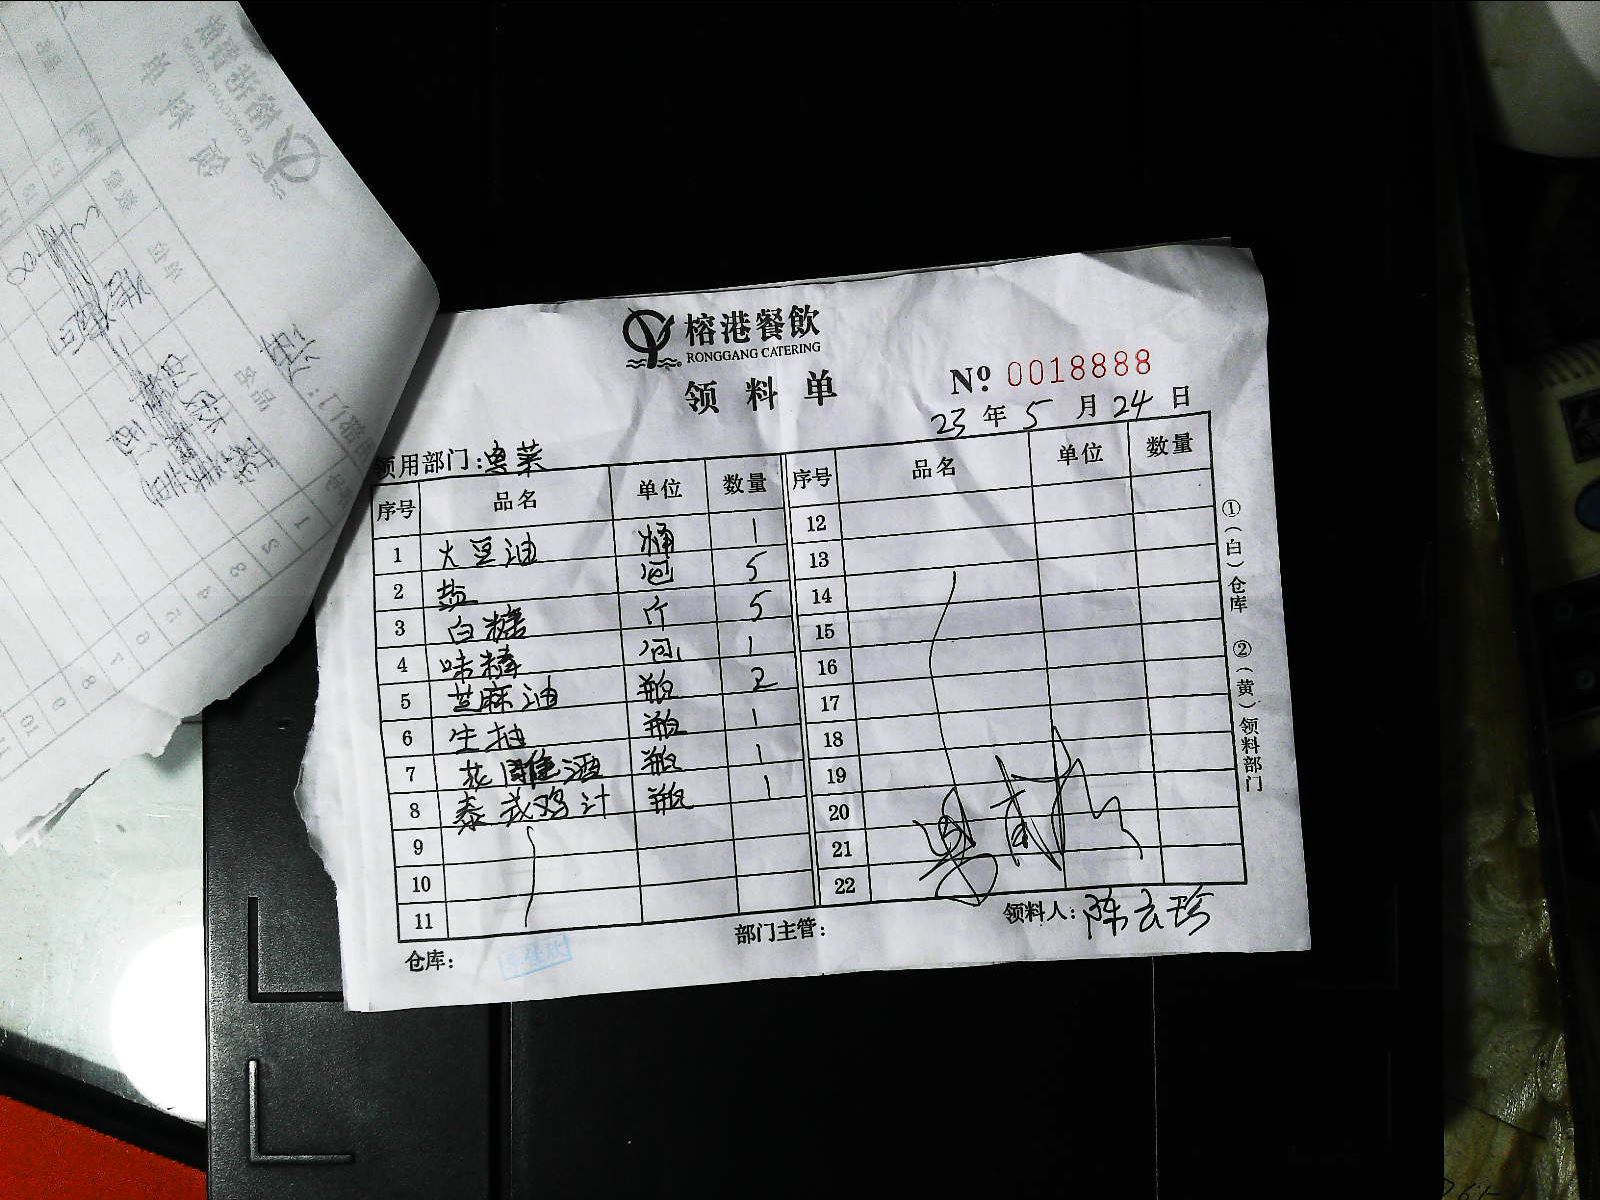 榕港餐飲
RONGGANG CATERING
领料单
Nº 0018888
23 年 5 月 24 日
领用部门：粤菜
序号 品名 单位 数量 序号 品名 单位 数量
1 大豆油 桶 1 12
2 盐 包 5 13
3 白糖 斤 5 14
4 味精 包 1 15
5 芝麻油 瓶 2 16
6 生抽 瓶 1 17
7 花雕酒 瓶 1 18
8 泰式鸡汁 瓶 1 19
9 20
10 21
11 22
仓库： 部门主管： 领料人：陈云珍
①（白）仓库 ②（黄）领料部门